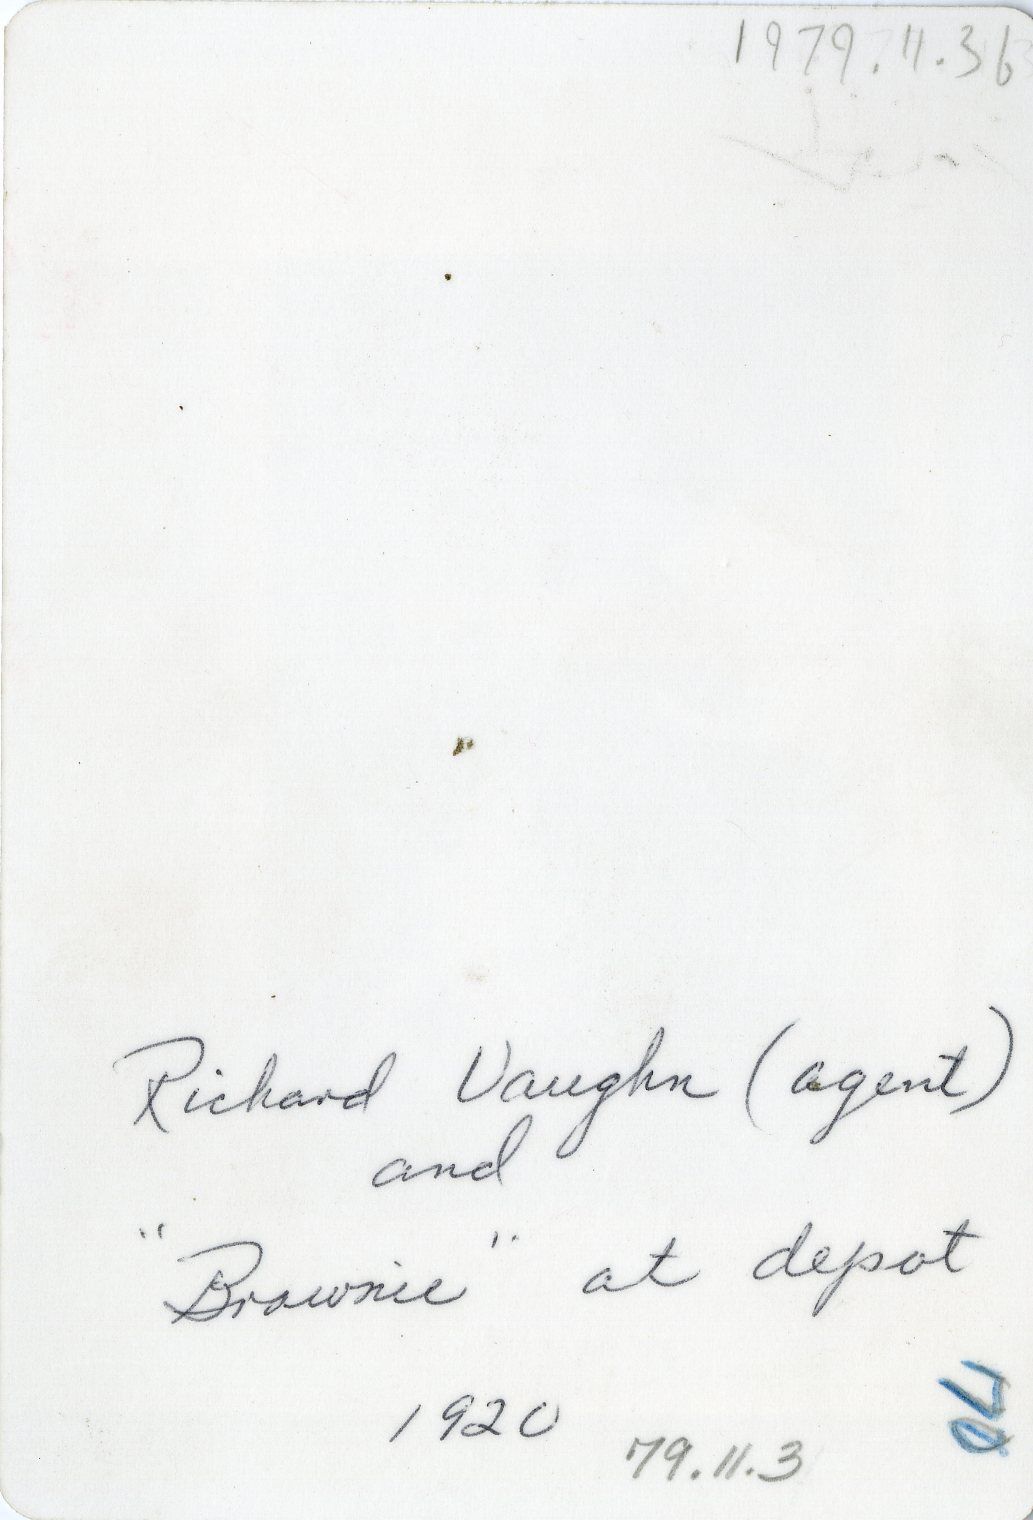 1979.11.3b
Richard Vaughn (agent)
and
"Brownie" at depot
1920
79.11.3